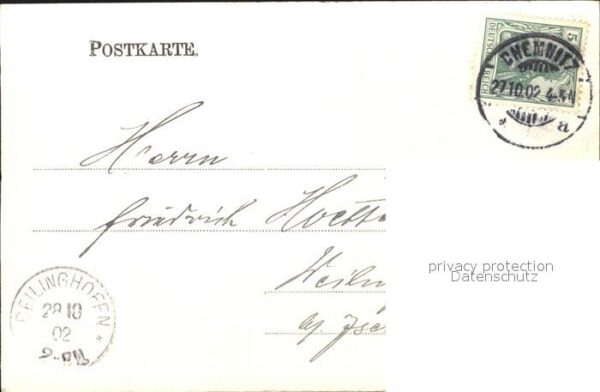 POSTKARTE.
5
DEUTSCHES REICH
CHEMNITZ
27.10.02. 4-5N
* B
Herrn
Friedrich
privacy protection
Datenschutz
DEILINGHOFEN *
28 10
02